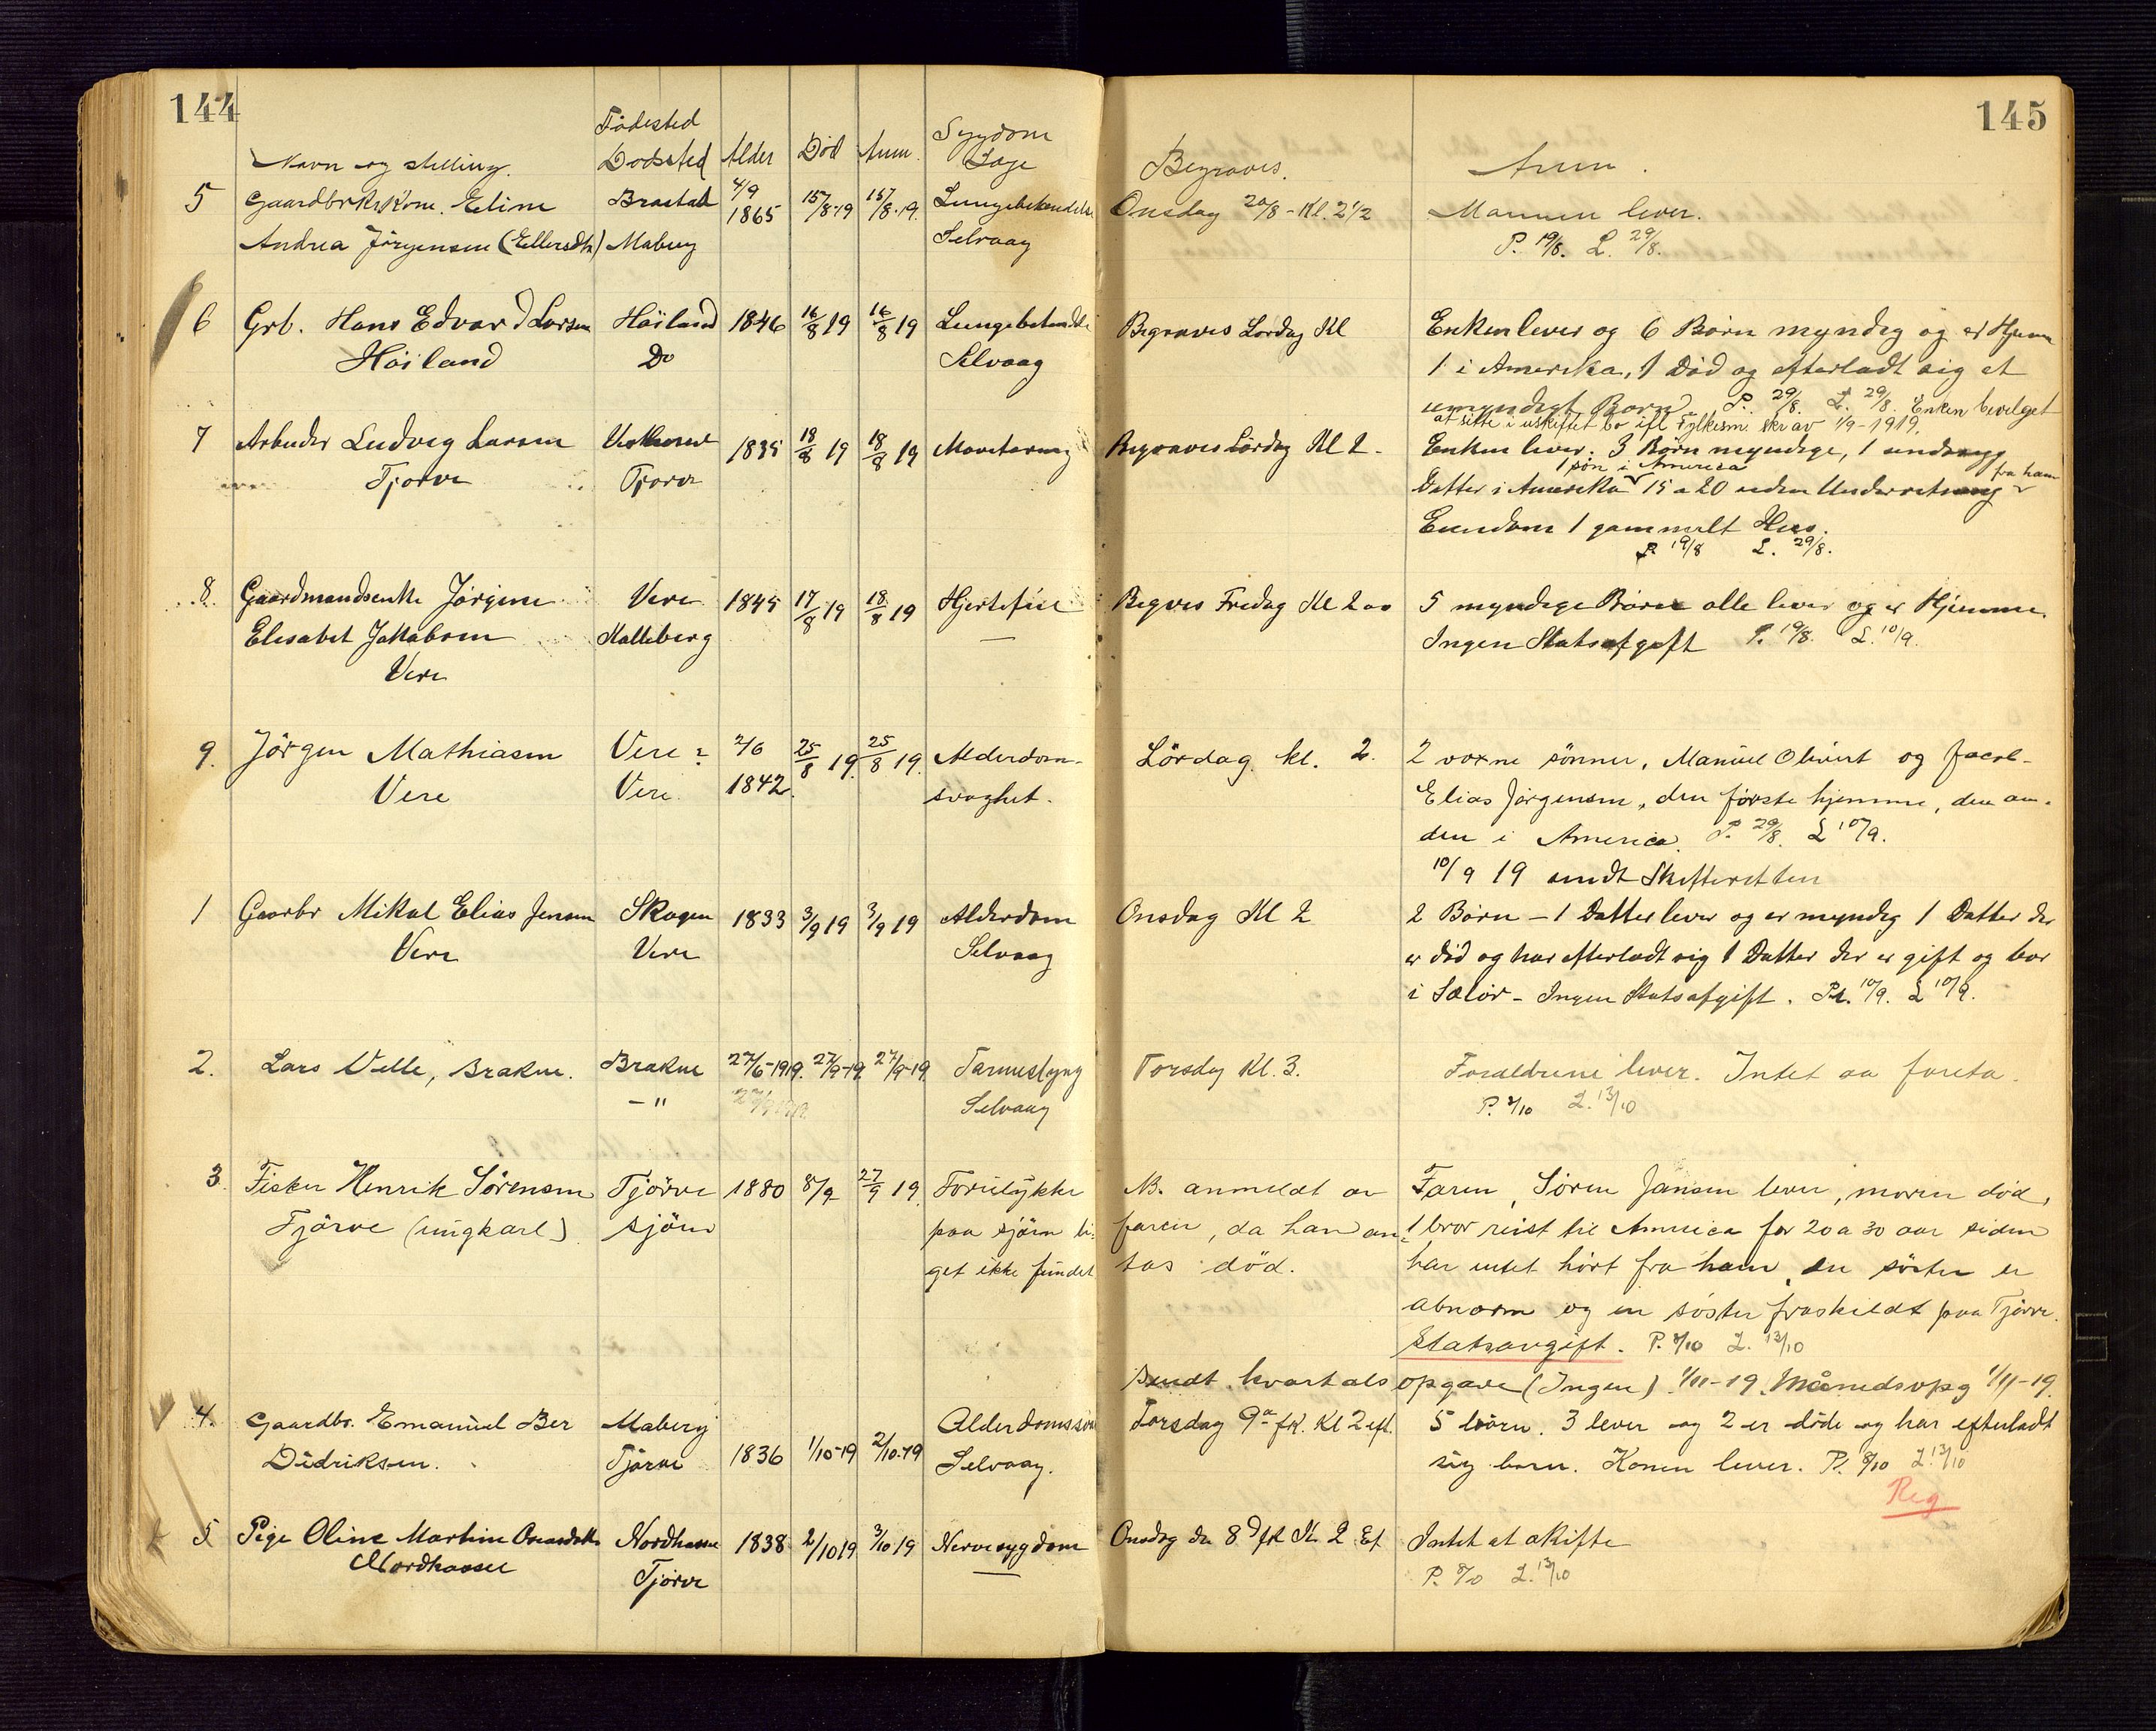 144
145
Navn og stilling. Födested Dödssted Alder Död Anm. Sygdom Læge Begraves. Anm.
5 Gaardbrkrkone. Eline Brastad 4/9 1865 15/8-19 15/8-19. Lungebetendelse Onsdag 20/8 - Kl. 2 1/2 Mannen lever.
Andrea Jörgensen (Eilersdtr) Maberg Selvaag P. 19/8. L. 29/8.
6 Grb. Hans Edvard Larsen Höiland 1846 16/8 19 16/8 19 Lungebetendelse Begraves Lördag Kl Enken lever og 6 Börn myndig og er Hjem
Höiland Do Selvaag 1 i Amerika, 1 Död og efterladt sig et
umyndigt Barn P. 29/8. L. 29/8. Enken bevilget
at sitte i uskiftet bo ifl Fylkesm. skr av 1/9-1919.
7 Arbeider Ludvig Larsen 1835 18/8 19 18/8 19 Mavetæring Begraves Lördag Kl 2 - Enken lever. 3 Börn myndige, 1
Tjörve Tjörve 1 sön i America fra ham
Datter i Amerika 15 a 20 uden Underretning
Eiendom 1 gammelt Hus.
P. 19/8 L. 29/8.
8. Gaardmandsenke Jörgine Vere 1845 17/8 19 18/8 19 Hjertefeil Begrves Fredag Kl 2 00 5 myndige Börn alle lever og er Hjemme.
Elesabet Jakobsen Kalleberg Ingen Statsafgift P. 19/8. L. 10/9.
Vere
9. Jörgen Mathiasen Vere? 2/6 25/8 19. 25/8 19. Alderdom- Lördag kl. 2. 2 voxne sönner, Manuel Olivert og Jacob-
Vere Vere. 1842. svaghet. Elias Jörgensen, den förste hjemme, den an-
den i America. P. 29/8. L 10/9.
10/9 19 sendt Skifteretten
1 Gaarbr Mikal Elias Jensen Skagen 1833 3/9 19 3/9 19 Alderdom Onsdag Kl 2 2 Börn - 1 Datter lever og er myndig 1 Datter der
Vere Vere Selvaag er död og har efterladt sig 1 Datter der er gift og bor
i Sælör - Ingen Statsafgift. P. 10/9. L 10/9.
2. Lars Velle, Brakne. Brakne 27/6-1919. 27/9-19. 27/9-19. Tarmeslyng Torsdag Kl. 3. Foreldrene lever. Intet aa foreta.
- " Selvaag P. 8/10 L. 13/10
3. Fisker Henrik Sörensen Tjörve 1880 8/9 27/9 19. Forulykke NB. anmeldt av Faren, Sören Jansen lever, moren död,
Tjörve (ungkarl) sjöen paa sjöen li- faren, da han an- 1 bror reist til America for 20 a 30 aar siden
get ikke fundet tas död. har intet hört fra ham, en söster er
abnorm og en söster fraskildt paa Tjörve.
Statsavgift. P. 8/10 L. 13/10
Sendt kvartalsopgave (Ingen) 1/11-19. Månedsopg 1/11-19.
4. Gaardbr. Emanuel Ber Maberg 1836 1/10-19 2/10-19 Alderdomssvag Torsdag 9de fk. Kl 2 eft. 5 börn. 3 lever og 2 er döde og har efterladt
Didriksen. Tjörve Selvaag. sig barn. Konen lever. P. 8/10 L. 13/10
Reg
5 Pige Oline Martine Nordhassel 1838 2/10 19 3/10 19 Nervesygdom Onsdag den 8d fk Kl. 2 Ef. Intet at skifte
Nordhassel Tjörve P. 8/10 L. 13/10